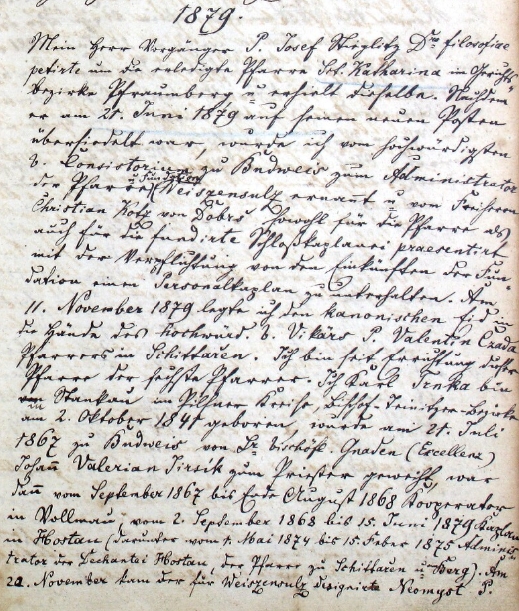 1879.
Mein Herr Vorgänger P. Josef Stieglitz Dr. filosofiae
petirte um die erledigte Pfarre Sct. Katharina im Gerichts-
bezirke Pfraumberg u. erhielt dieselbe. Nachdem
er am 21. Juni 1879 auf seinen neuen Posten
übersiedelt war, wurde ich vom hochwürdigsten
b. Consistorium zu Budweis zum Administrator
der Pfarre Weiszensulz ernannt u. vom Freiherrn
Christian Kotz von Dobrš sowohl für die Pfarre als
auch für die fundirte Schloßkaplanei praesentirt
mit der Verpflichtung von den Einkünften der Fun-
dation einen Personalkaplan zu unterhalten. Am
11. November 1879 legte ich den kanonischen Eid in
die Hände des hochwürd. b. Vikärs P. Valentin Czada
Pfarrers in Schittaren. Ich bin seit Errichtung dieser
Pfarre der sechste Pfarrer. Ich Karl Trnka bin
in Stankau im Pilsner Kreise, Bischof-Teinitzer-Bezirke
am 2. Oktober 1841 geboren, wurde am 21. Juli
1867 zu Budweis von Sr. bischöfl. Gnaden (Excellenz)
Johann Valerian Jirsik zum Priester geweiht, war
dann vom September 1867 bis Ende August 1868 Kooperator
in Vollmau, vom 2. September 1868 bis 15. Juni 1879 Kaplan
in Hostau (darunter vom 1. Mai 1874 bis 15. Feber 1875 Adminis-
trator der Dechantei Hostau, der Pfarre zu Schittaren u. Berg). Am
21. November kam der für Weiszensulz designirte Neomyst P.